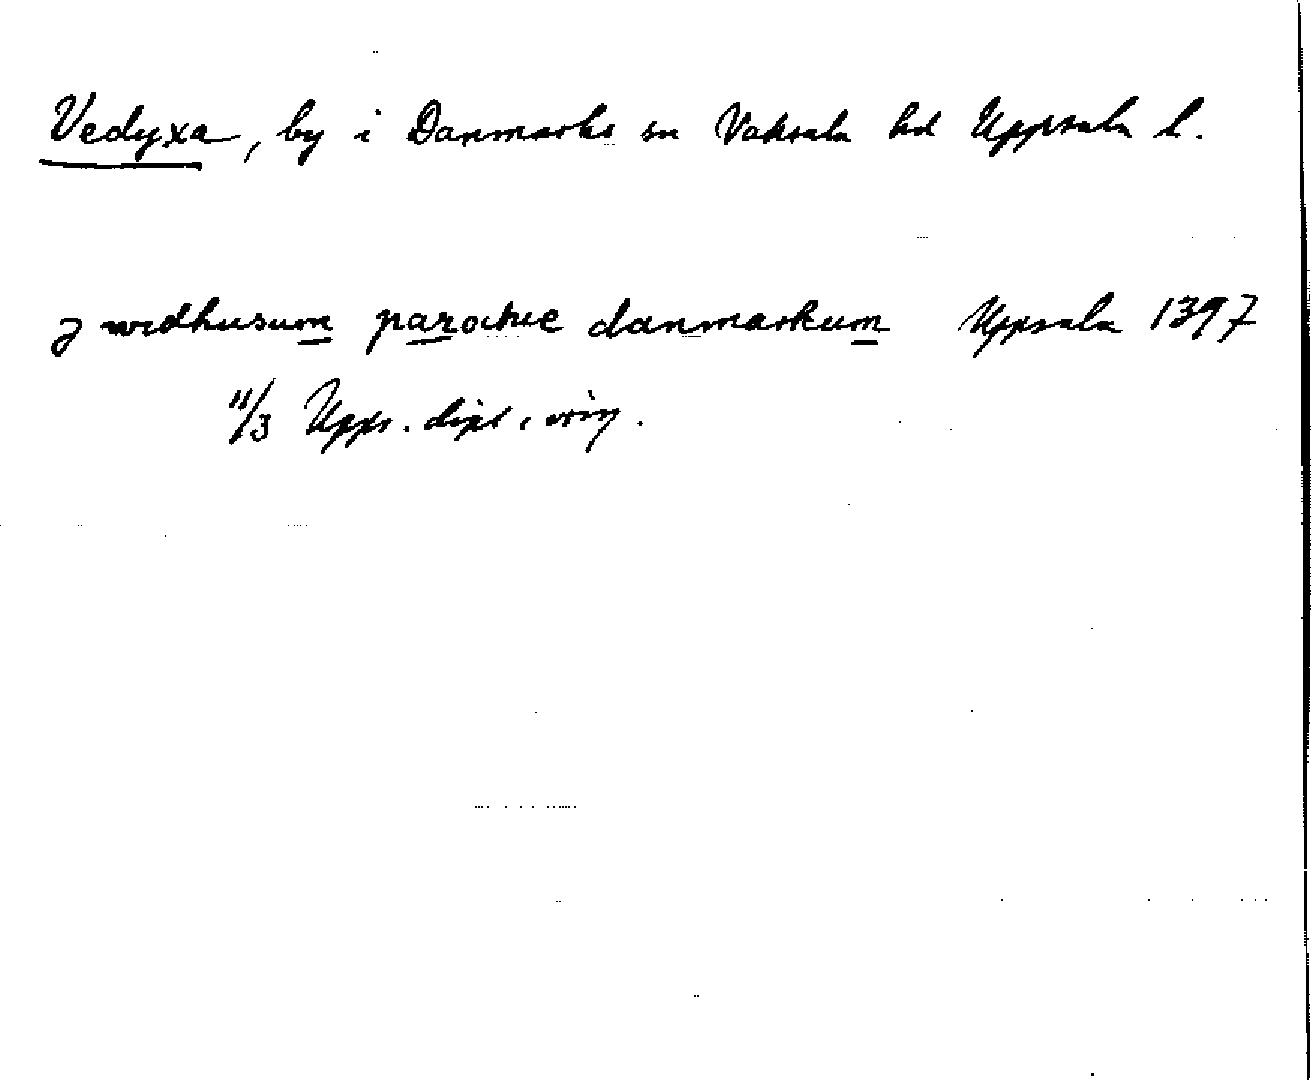 Vedyxa, by i Danmarks sn Vaksala hd Uppsala l.
j widhusum parochie danmarkum Uppsala 1397
11/3 Upps. dipl. orig.